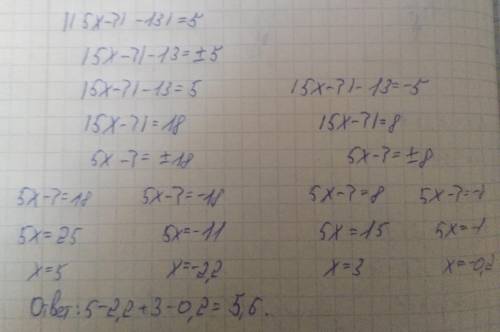 ||5x-7|-13|=5
|5x-7|-13=±5
|5x-7|-13=5 |5x-7|-13=-5
|5x-7|=18 |5x-7|=8
5x-7=±18 5x-7=±8
5x-7=18 5x-7=-18 5x-7=8 5x-7=-8
5x=25 5x=-11 5x=15 5x=-1
x=5 x=-2,2 x=3 x=-0,2
Ответ: 5-2,2+3-0,2=5,6.